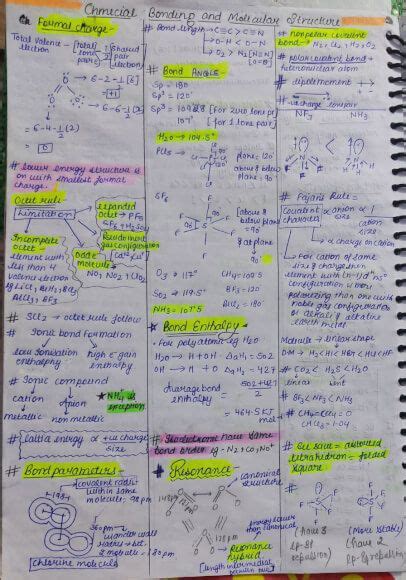 Chmecial Bonding and Molcular Structure
Formal charge -
Total Valence - [total lone pairs] - 1/2 [shared pair electron]
election
6-2-1/2[6]
+1
6-6-1/2(2)
=6-4-1/2(2)
= 0
# lower energy structure is
on with smallest formal
charge.
Octet rule -
Limitation
expanded
octet → PF5
SF6 + H2SO4
Incomplete
octet -
element with
less than 4
valence electron
eg LiCl, BeH2, BCl3
AlCl3, BF3
odd e-
molecule
NO, NO2, ClO2
# SCl2 → octet rule follow
# Ionic bond formation
low Ionisation
enthalpy
high e- gain
enthalpy
# Ionic compound
cation
Anion
metallic
non metallic
★ NH4 is
exception
# Lattice energy ∝ +ve charge
size
# Bond parameters -
covalent radii
within same
molecule. 99 pm
198
360pm
vander waal
radius → bet.
2 molecule - 180 pm
chlorine molecule
# Bond length → C≡C > C≡N
O-H < O-N
O2 > N2 [N≡N]
# Bond ANGLE -
Sp = 180
Sp2 = 120°
[for zero lone pair]
107° [for 1 lone pair]
H2O → 104.5°
PCl5 -
plane = 120°
above & below
plane = 90°
SF6
above &
below
plane
= 90°
& at plane
90°
O3 → 117°
CH4 = 109.5
SO2 → 119.5°
BF3 = 120
NH3 = 107.5
BeCl2 = 180°
★ Bond Enthalpy -
• For polyatomic eg H2O
H2O → H + OH ΔaH1 = 502
OH → H + O ΔaH2 = 427
average bond
enthalpy = 502+427
2
= 464.5 KJ
mol
# Isoelectronic have same
bond order eg - N2, CO, NO+
# Resonance -
canonical
structure
148pm
121pm
128pm
energy lower than canonical
Resonance
hybrid
[length intermediate
# nonpolar covalent
bond → H2, Cl2, H2, O2
# polar covalent bond →
heteronuclear atom
# dipole moment
NF3
NH3
<
N
F F F
H H H
# Fajans Rule =
Covalent
character
∝ anion
size
∝ 1
cation
size
∝ charge on cation
• For cation of same
size & charge then
element with (n-1)dn ns0
configuration is more
polarizing than one with
noble gas configuration
or alkali & alkaline
earth metal
D.M → HI < HBr < HCl < HF
# CO2 < H2S < H2O
linear
bent
# BF3 < NF3 < NH3
# CH4 = CCl4 = 0
CHCl3 = 1.04
# See saw = distorted
tetrahedron = folded
square
#
(have 3
lp-bp
repulsion)
(More stable)
(have 2
lp-bp repulsion)